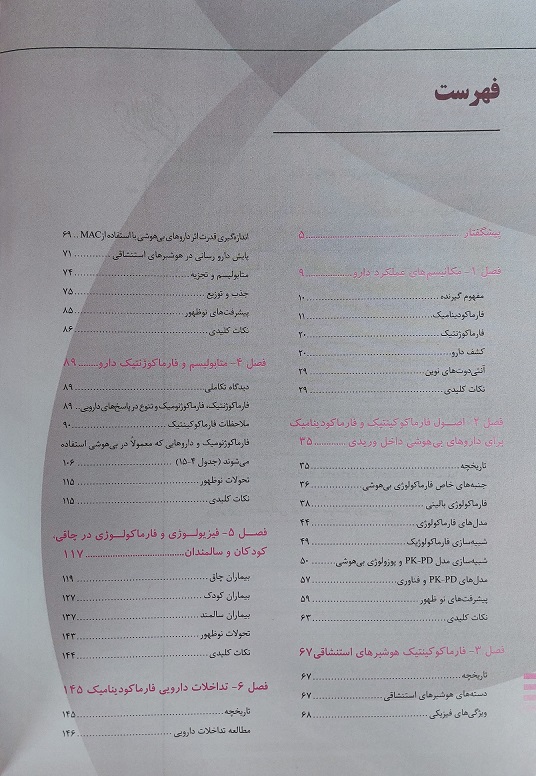 فهرست
پیشگفتار ..... ۵
فصل ۱- مکانیسم‌های عملکرد دارو ..... ۹
مفهوم گیرنده ..... ۱۰
فارماکودینامیک ..... ۱۱
فارماکوژنتیک ..... ۲۰
کشف دارو ..... ۲۰
آنتی‌دوت‌های نوین ..... ۲۹
نکات کلیدی ..... ۲۹
فصل ۲- اصول فارماکوکینتیک و فارماکودینامیک
برای داروهای بی‌هوشی داخل وریدی ..... ۳۵
تاریخچه ..... ۳۵
جنبه‌های خاص فارماکولوژی بی‌هوشی ..... ۳۶
فارماکولوژی بالینی ..... ۳۸
مدل‌های فارماکولوژی ..... ۴۴
شبیه‌سازی فارماکولوژیک ..... ۴۹
شبیه‌سازی مدل PK-PD و پوزولوژی بی‌هوشی ..... ۵۰
مدل‌های PK-PD و فناوری ..... ۵۷
پیشرفت‌های نو ظهور ..... ۵۹
نکات کلیدی ..... ۶۳
فصل ۳- فارماکوکینتیک هوشبرهای استنشاقی ۶۷
تاریخچه ..... ۶۷
دسته‌های هوشبرهای استنشاقی ..... ۶۷
ویژگی‌های فیزیکی ..... ۶۸
اندازه‌گیری قدرت اثر داروهای بی‌هوشی با استفاده از MAC .. ۶۹
پایش دارو رسانی در هوشبرهای استنشاقی ..... ۷۱
متابولیسم و تجزیه ..... ۷۴
جذب و توزیع ..... ۷۵
پیشرفت‌های نوظهور ..... ۸۵
نکات کلیدی ..... ۸۶
فصل ۴- متابولیسم و فارماکوژنتیک دارو ..... ۸۹
دیدگاه تکاملی ..... ۸۹
فارماکوژنتیک، فارماکوژنومیک و تنوع در پاسخ‌های دارویی .. ۸۹
ملاحظات فارماکوکینتیک ..... ۹۰
فارماکوژنومیک و داروهایی که معمولاً در بی‌هوشی استفاده
می‌شوند (جدول ۴-۱۵) ..... ۱۰۶
تحولات نوظهور ..... ۱۱۵
نکات کلیدی ..... ۱۱۵
فصل ۵- فیزیولوژی و فارماکولوژی در چاقی،
کودکان و سالمندان ..... ۱۱۷
بیماران چاق ..... ۱۱۹
بیماران کودک ..... ۱۲۷
بیماران سالمند ..... ۱۳۷
تحولات نوظهور ..... ۱۴۳
نکات کلیدی ..... ۱۴۴
فصل ۶- تداخلات دارویی فارماکودینامیک ۱۴۵
تاریخچه ..... ۱۴۵
مطالعه تداخلات دارویی ..... ۱۴۶